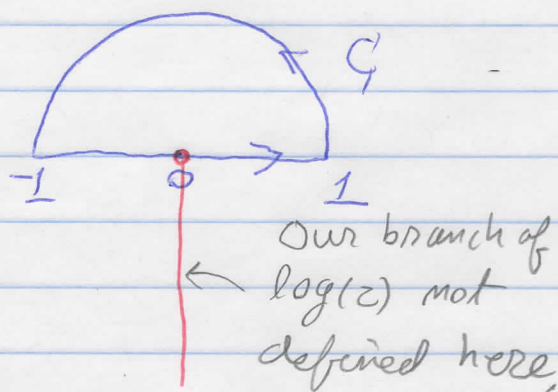 C₁
-1
0
1
Our branch of
log(z) not
defined here